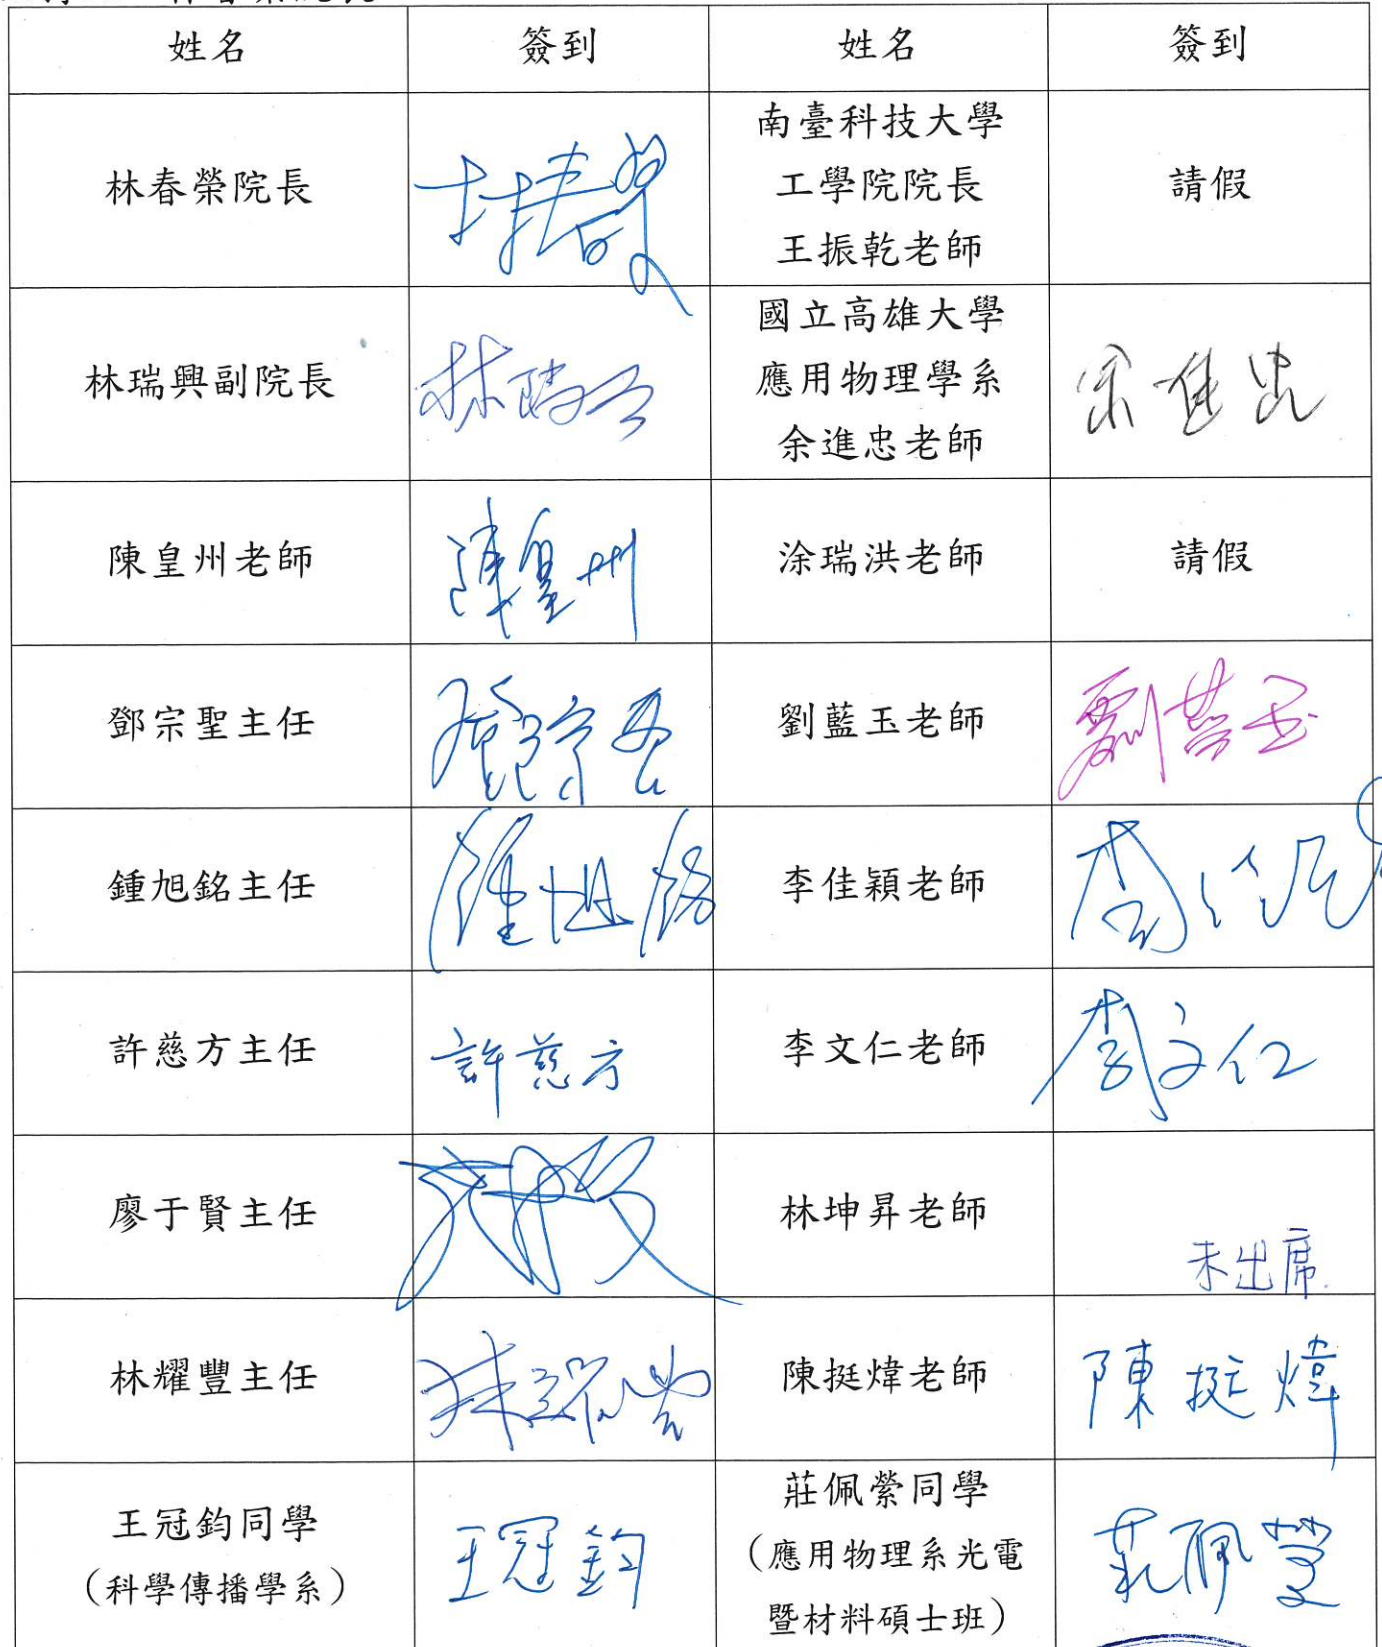 姓名 簽到 姓名 簽到
林春榮院長 林春榮 南臺科技大學
工學院院長
王振乾老師 請假
林瑞興副院長 林瑞興 國立高雄大學
應用物理學系
余進忠老師 余進忠
陳皇州老師 陳皇州 涂瑞洪老師 請假
鄧宗聖主任 鄧宗聖 劉藍玉老師 劉藍玉
鍾旭銘主任 鍾旭銘 李佳穎老師 李佳穎
許慈方主任 許慈方 李文仁老師 李文仁
廖于賢主任 林坤昇老師 未出席
林耀豐主任 陳挺煒老師 陳挺煒
王冠鈞同學
（科學傳播學系） 王冠鈞 莊佩縈同學
（應用物理系光電
暨材料碩士班） 莊佩縈